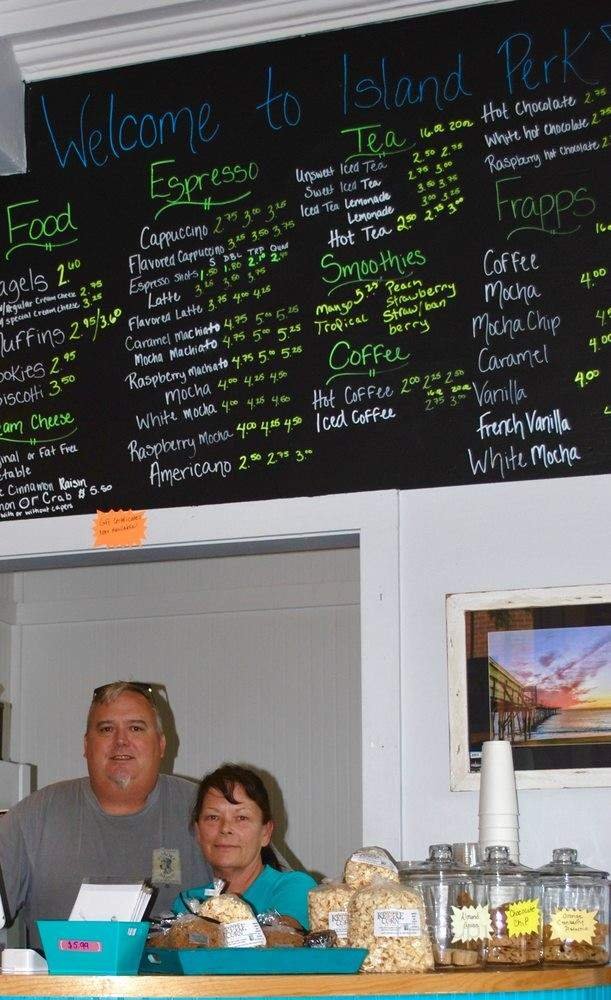 Welcome to Island Perk
Food
agels 2.60
w/Regular Cream Cheese 2.95
special cream cheese 3.25
uffins 2.95/3.60
ookies 2.95
iscotti 3.50
eam Cheese
inal or Fat Free
etable
Cinnamon Raisin
mon or Crab $5.50
with or without capers
Espresso
Cappuccino 2.75 3.00 3.25
Flavored Cappuccino 3.25 3.50 3.75
S DBL TRP Quad
Espresso Shots 1.50 1.80 2.10
Latte 3.25 3.50 3.75
Flavored Latte 3.75 4.00 4.25
Caramel Machiato 4.75 5.00 5.25
Mocha Machiato 4.75 5.00 5.25
Raspberry Machiato 4.75 5.00 5.25
Mocha 4.00 4.25 4.50
White Mocha 4.00 4.25 4.50
Raspberry Mocha 4.00 4.25 4.50
Americano 2.50 2.75 3.00
Tea 16oz 20oz
Unsweet Iced Tea 2.50 2.75
Sweet Iced Tea 2.75 3.00
Iced Tea Lemonade 3.50 3.75
Lemonade 3.00 3.25
Hot Tea 2.50 2.75 3.00
Smoothies
Mango 5.25 Peach
Tropical Strawberry
Straw/ban
berry
Coffee
Hot Coffee 2.00 2.25 2.50
16oz 20oz
Iced Coffee 2.75 3.00
Hot Chocolate 2.75
White Hot Chocolate 2.75
Raspberry Hot Chocolate 2
Frapps
16
Coffee
Mocha 4.00
Mocha Chip 4.5
Caramel 4.00
Vanilla 4.00
French Vanilla
White Mocha
Gift Certificates
Now Available!
$5.99
KETTLE
CORN
KETTLE
CORN
Almond
Chocolate
Chip
Orange
Cranberry
Pistachio